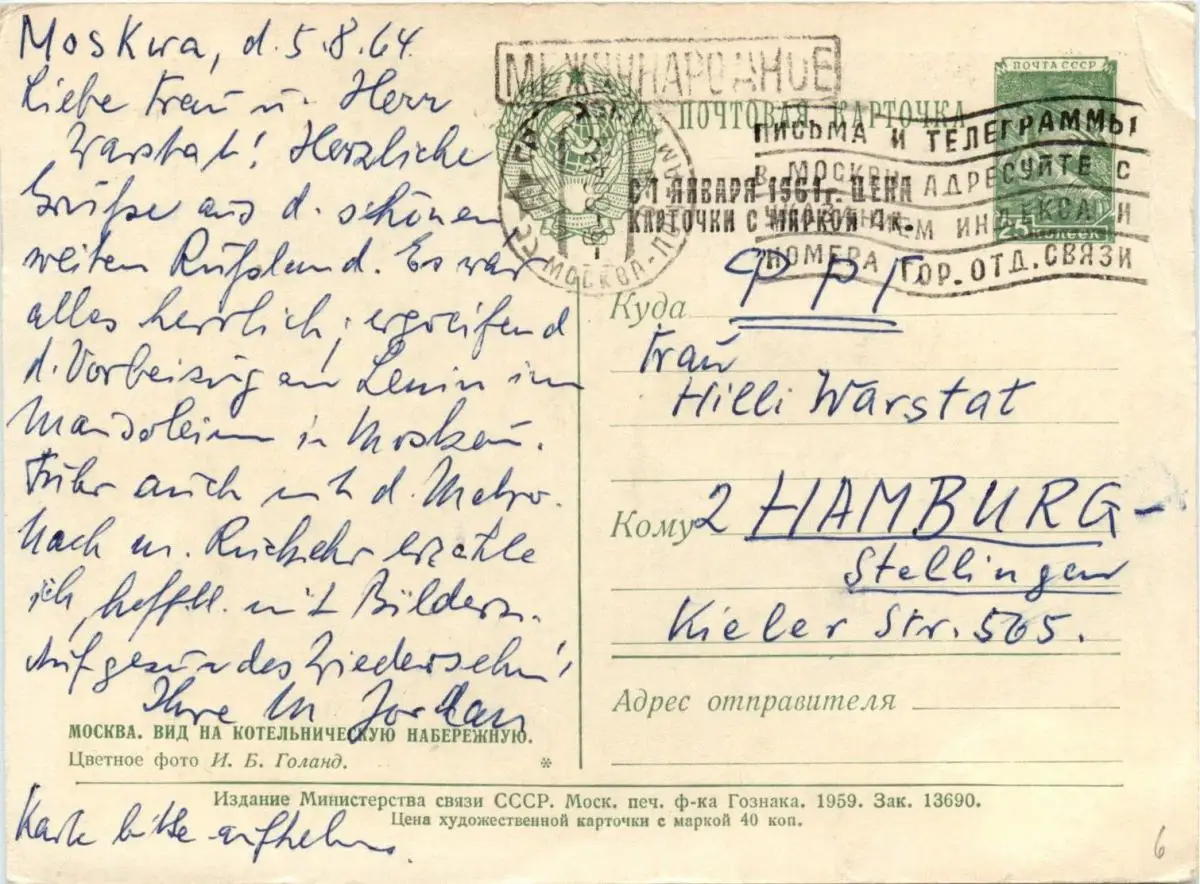 Moskwa, d. 5.8.64.
Liebe Frau u. Herr
Warstat! Herzliche
Grüße aus d. schönen
weiten Rußland. Es war
alles herrlich; ergreifend
d. Vorbeizug an Lenin im
Mausoleum in Moskau.
Fuhr auch mit d. Metro.
Nach m. Rückkehr erzähle
ich, hofftl. mit Bildern.
Auf gesundes Wiedersehn!
Ihre M Jordan
МОСКВА. ВИД НА КОТЕЛЬНИЧЕСКУЮ НАБЕРЕЖНУЮ.
Цветное фото И. Б. Голанд.
*
Karte bitte aufheben.
МЕЖДУНАРОДНОЕ
ПОЧТА СССР
ПОЧТОВАЯ КАРТОЧКА
ПИСЬМА И ТЕЛЕГРАММЫ
В МОСКВУ АДРЕСУЙТЕ С
УКАЗАНИЕМ ИНДЕКСА И
НОМЕРА ГОР. ОТД. СВЯЗИ
С 1 ЯНВАРЯ 1961г. ЦЕНА
КАРТОЧКИ С МАРКОЙ 4к.
25 КОПЕЕК
МОСКВА
СССР
Куда
ФРГ
Frau
Hilli Warstat
Кому 2 HAMBURG-
Stellingen
Kieler Str. 565.
Адрес отправителя
Издание Министерства связи СССР. Моск. печ. ф-ка Гознака. 1959. Зак. 13690.
Цена художественной карточки с маркой 40 коп.
6